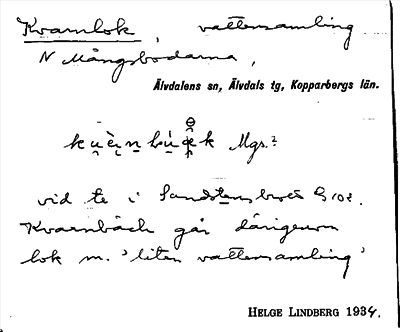 Kvarnlok, vattensamling
N Mångsbodarna,
Älvdalens sn, Älvdals tg, Kopparbergs län.
Mgs.
vid te i
Kvarnbäck går därigenom
lok m. 'liten vattensamling'
HELGE LINDBERG 1934.